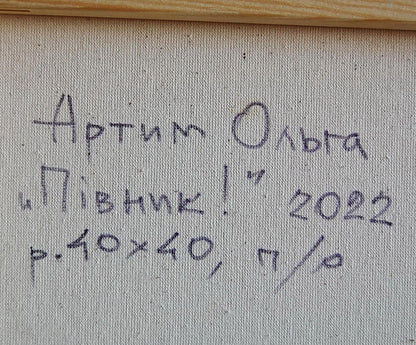 Артим Ольга
„Півник!" 2022
р.40×40, п/о